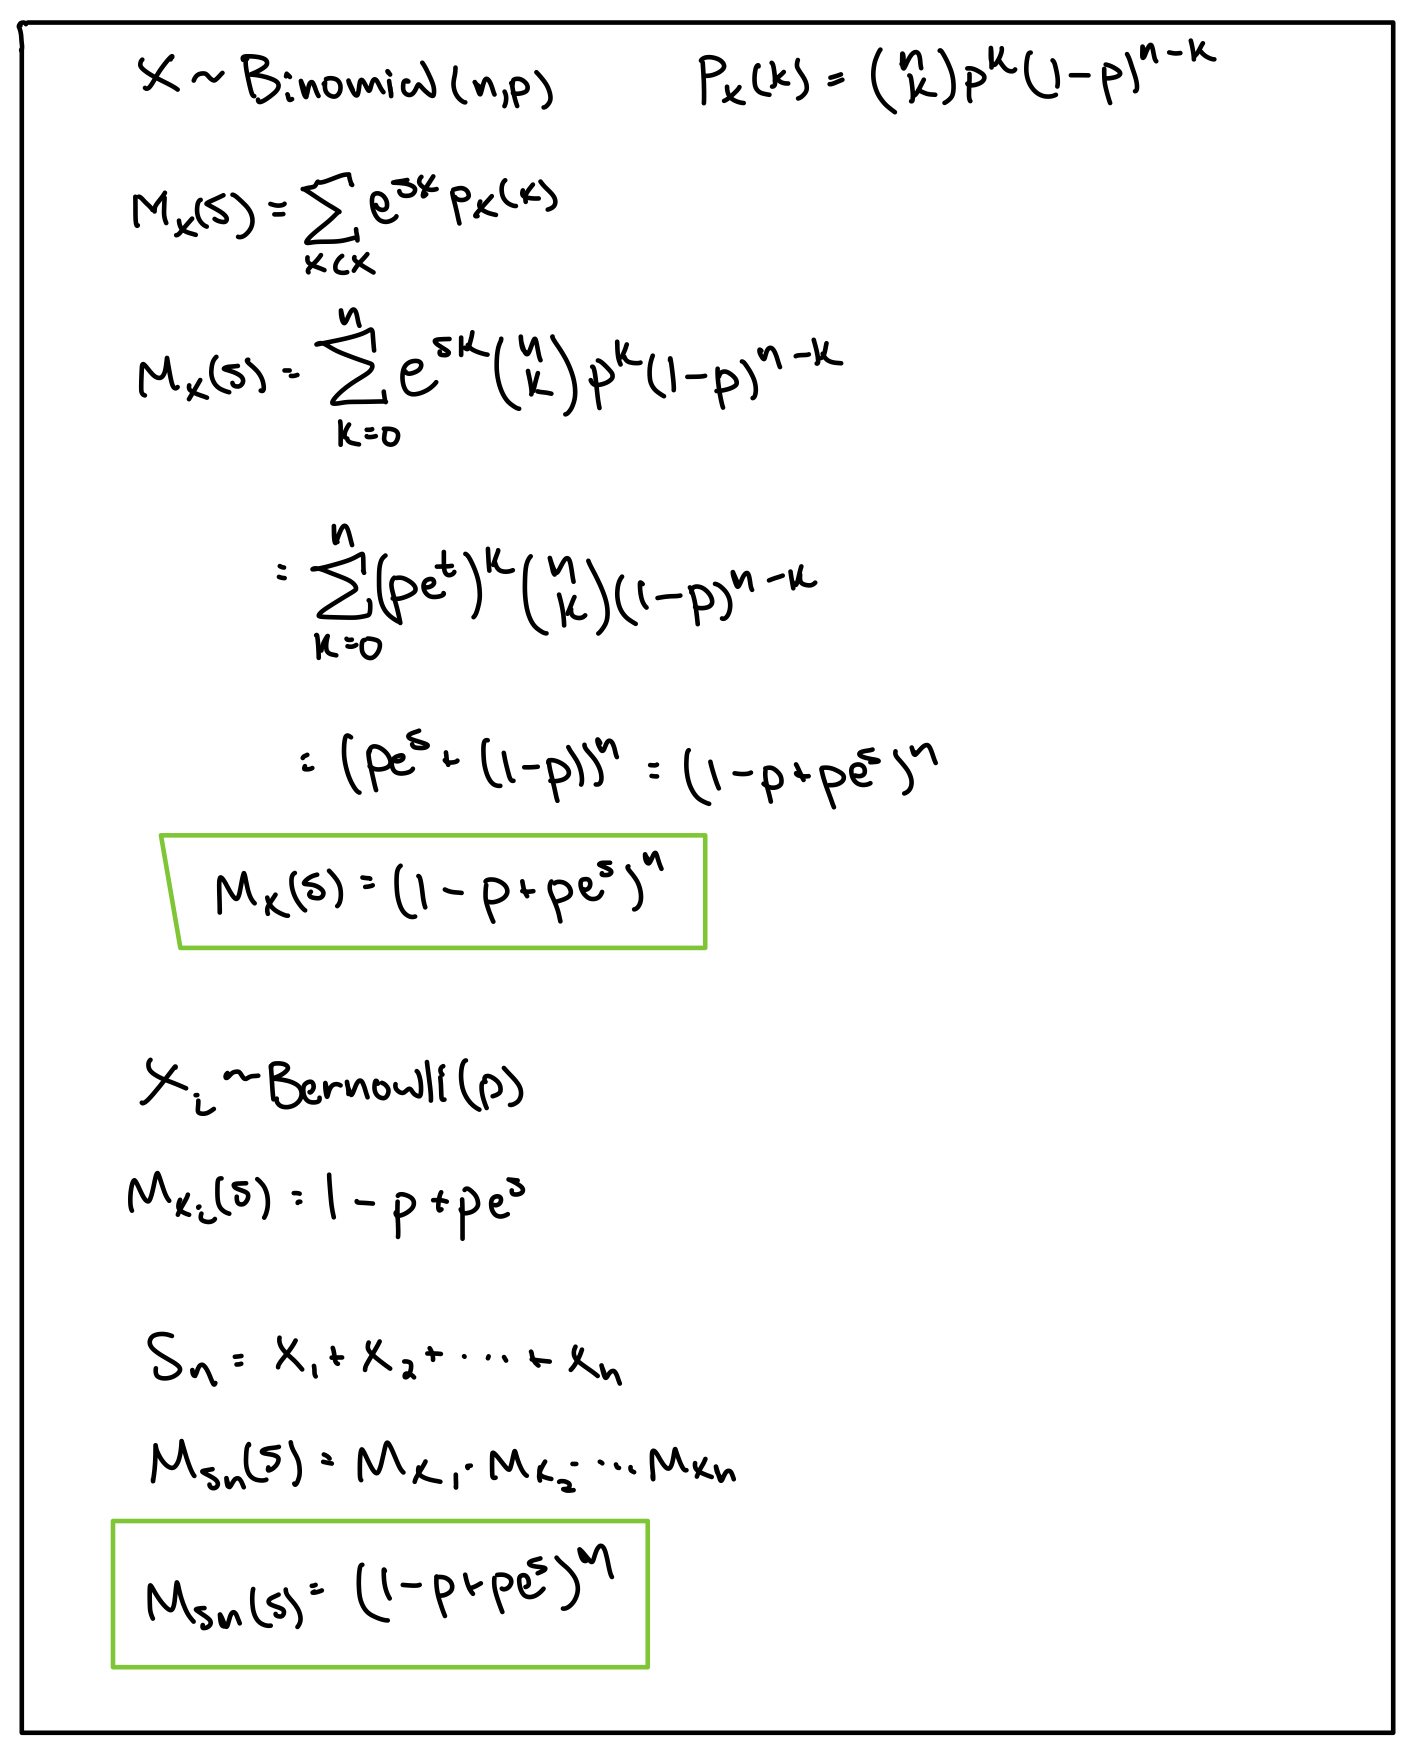 X ~ Binomial (n,p) P_X(k) = (n k) p^k (1-p)^{n-k}
M_X(s) = Σ_{x<x} e^{sx} p_X(x)
M_X(s) = Σ_{k=0}^{n} e^{sk} (n k) p^k (1-p)^{n-k}
= Σ_{k=0}^{n} (pe^t)^k (n k) (1-p)^{n-k}
= (pe^s + (1-p))^n = (1-p+pe^s)^n
M_X(s) = (1-p+pe^s)^n
X_i ~ Bernoulli (p)
M_{X_i}(s) = 1-p+pe^s
S_n = X_1 + X_2 + ... + X_n
M_{Sn}(s) = M_{X_1} · M_{X_2} · ... M_{Xn}
M_{Sn}(s) = (1-p+pe^s)^n